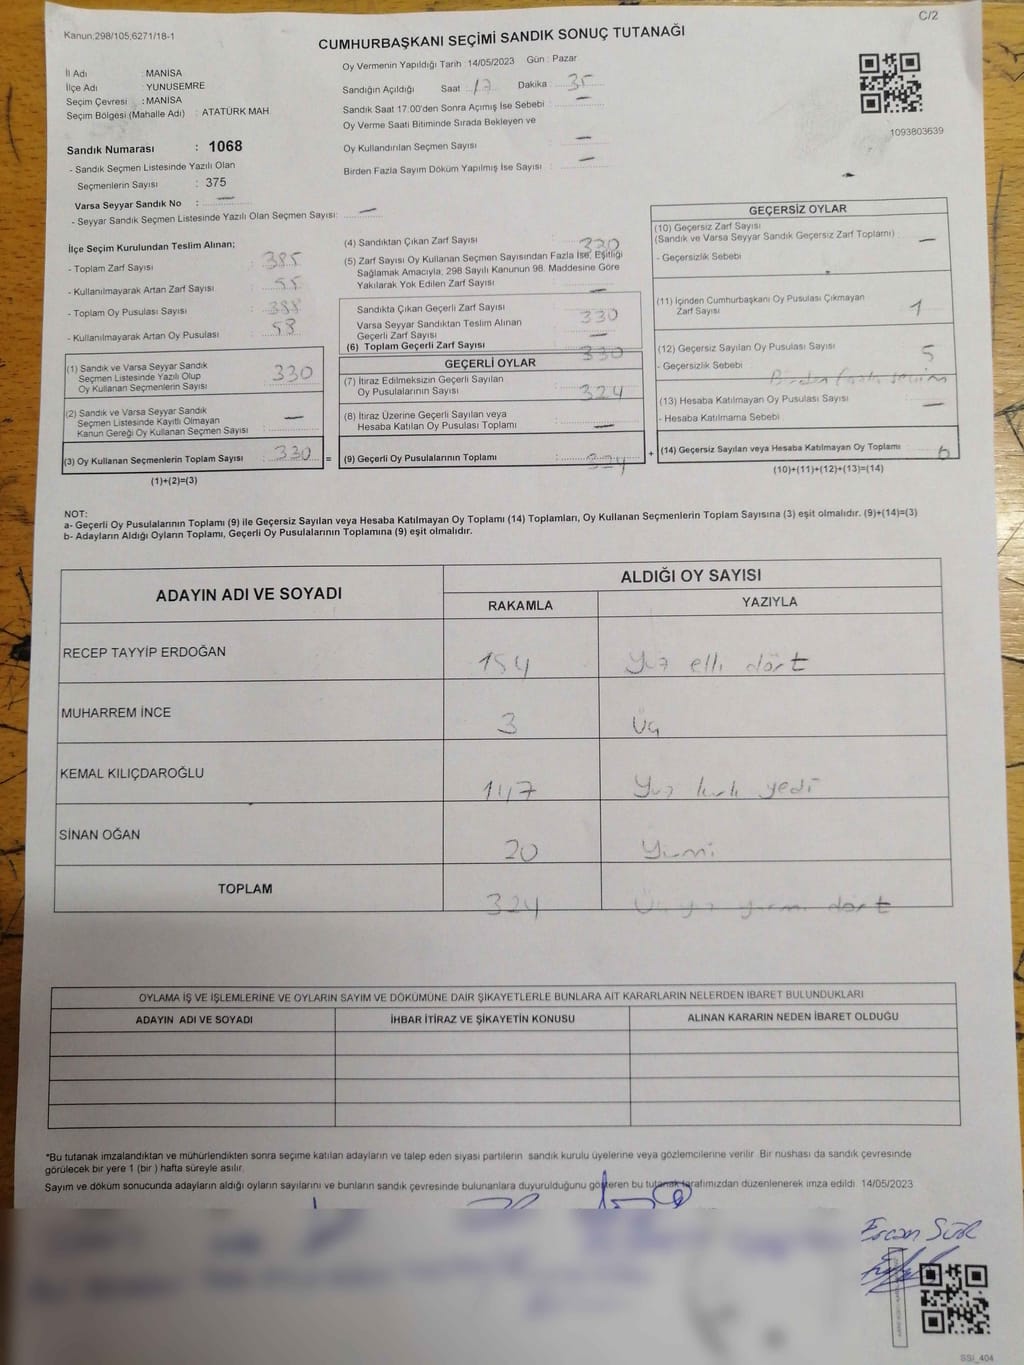 C/2
Kanun:298/105;6271/18-1
CUMHURBAŞKANI SEÇİMİ SANDIK SONUÇ TUTANAĞI
İl Adı : MANİSA
İlçe Adı YUNUSEMRE
Seçim Çevresi : MANİSA
Seçim Bölgesi (Mahalle Adı) : ATATÜRK MAH.
Sandık Numarası : 1068
- Sandık Seçmen Listesinde Yazılı Olan
Seçmenlerin Sayısı : 375
Varsa Seyyar Sandık No : —
- Seyyar Sandık Seçmen Listesinde Yazılı Olan Seçmen Sayısı: —
Oy Vermenin Yapıldığı Tarih : 14/05/2023 Gün : Pazar
Sandığın Açıldığı Saat 17 Dakika 35
Sandık Saat 17.00'den Sonra Açımış İse Sebebi : —
Oy Verme Saati Bitiminde Sırada Bekleyen ve
Oy Kullandırılan Seçmen Sayısı : —
Birden Fazla Sayım Döküm Yapılmış İse Sayısı : —
1093803639
İlçe Seçim Kurulundan Teslim Alınan;
- Toplam Zarf Sayısı : 385
- Kullanılmayarak Artan Zarf Sayısı : 55
- Toplam Oy Pusulası Sayısı : 388
- Kullanılmayarak Artan Oy Pusulası : 58
(1) Sandık ve Varsa Seyyar Sandık
Seçmen Listesinde Yazılı Olup
Oy Kullanan Seçmenlerin Sayısı : 330
(2) Sandık ve Varsa Seyyar Sandık
Seçmen Listesinde Kayıtlı Olmayan
Kanun Gereği Oy Kullanan Seçmen Sayısı : —
(3) Oy Kullanan Seçmenlerin Toplam Sayısı : 330 =
(1)+(2)=(3)
(4) Sandıktan Çıkan Zarf Sayısı : 330
(5) Zarf Sayısı Oy Kullanan Seçmen Sayısından Fazla İse, Eşitliği
Sağlamak Amacıyla, 298 Sayılı Kanunun 98. Maddesine Göre
Yakılarak Yok Edilen Zarf Sayısı : —
Sandıkta Çıkan Geçerli Zarf Sayısı : 330
Varsa Seyyar Sandıktan Teslim Alınan
Geçerli Zarf Sayısı : —
(6) Toplam Geçerli Zarf Sayısı : 330
GEÇERLİ OYLAR
(7) İtiraz Edilmeksizin Geçerli Sayılan
Oy Pusulalarının Sayısı : 324
(8) İtiraz Üzerine Geçerli Sayılan veya
Hesaba Katılan Oy Pusulası Toplamı : —
(9) Geçerli Oy Pusulalarının Toplamı : 324 +
GEÇERSİZ OYLAR
(10) Geçersiz Zarf Sayısı
(Sandık ve Varsa Seyyar Sandık Geçersiz Zarf Toplamı) : —
- Geçersizlik Sebebi
(11) İçinden Cumhurbaşkanı Oy Pusulası Çıkmayan
Zarf Sayısı 1
(12) Geçersiz Sayılan Oy Pusulası Sayısı : 5
- Geçersizlik Sebebi Birden fazla seçim
(13) Hesaba Katılmayan Oy Pusulası Sayısı : —
- Hesaba Katılmama Sebebi
(14) Geçersiz Sayılan veya Hesaba Katılmayan Oy Toplamı : 6
(10)+(11)+(12)+(13)=(14)
NOT:
a- Geçerli Oy Pusulalarının Toplamı (9) ile Geçersiz Sayılan veya Hesaba Katılmayan Oy Toplamı (14) Toplamları, Oy Kullanan Seçmenlerin Toplam Sayısına (3) eşit olmalıdır. (9)+(14)=(3)
b- Adayların Aldığı Oyların Toplamı, Geçerli Oy Pusulalarının Toplamına (9) eşit olmalıdır.
ADAYIN ADI VE SOYADI ALDIĞI OY SAYISI
RAKAMLA YAZIYLA
RECEP TAYYİP ERDOĞAN 154 Yüz elli dört
MUHARREM İNCE 3 Üç
KEMAL KILIÇDAROĞLU 147 Yüz kırk yedi
SİNAN OĞAN 20 Yirmi
TOPLAM 324 Üç yüz yirmi dört
OYLAMA İŞ VE İŞLEMLERİNE VE OYLARIN SAYIM VE DÖKÜMÜNE DAİR ŞİKAYETLERLE BUNLARA AİT KARARLARIN NELERDEN İBARET BULUNDUKLARI
ADAYIN ADI VE SOYADI İHBAR İTİRAZ VE ŞİKAYETİN KONUSU ALINAN KARARIN NEDEN İBARET OLDUĞU
*Bu tutanak imzalandıktan ve mühürlendikten sonra seçime katılan adayların ve talep eden siyasi partilerin sandık kurulu üyelerine veya gözlemcilerine verilir. Bir nushası da sandık çevresinde
görülecek bir yere 1 (bir ) hafta süreyle asılır.
Sayım ve döküm sonucunda adayların aldığı oyların sayılarını ve bunların sandık çevresinde bulunanlara duyurulduğunu gösteren bu tutanak tarafımızdan düzenlenerek imza edildi. 14/05/2023
Ercan
SSI_404